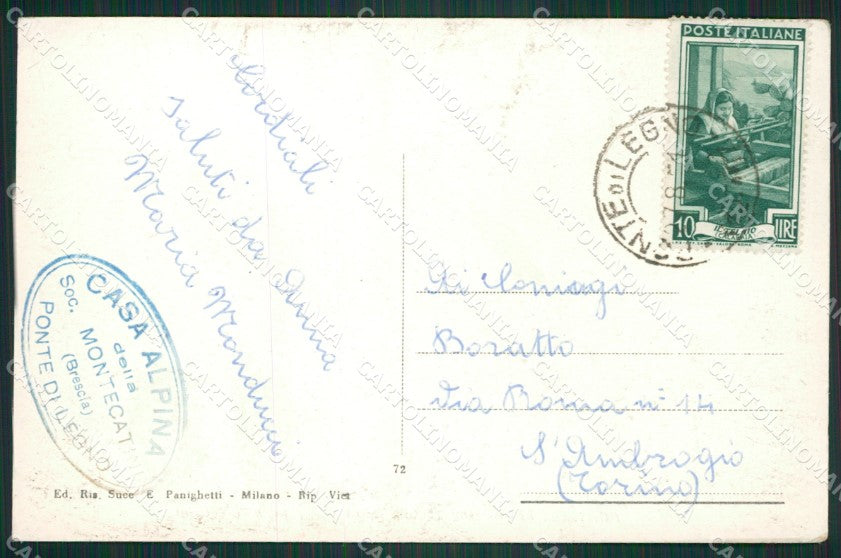 Cordiali
saluti da Anna
Maria Monduci
CASA ALPINA
della
Soc. MONTECAT
(Brescia)
PONTE DI LEGNO
Ed. Ris. Succ. E. Panighetti - Milano - Rip. Viet
72
POSTE ITALIANE
10 LIRE
PONTE DI LEGNO
Boratto
Via Roma n° 14
S'Ambrogio
(Torino)
CARTOLINOMANIA